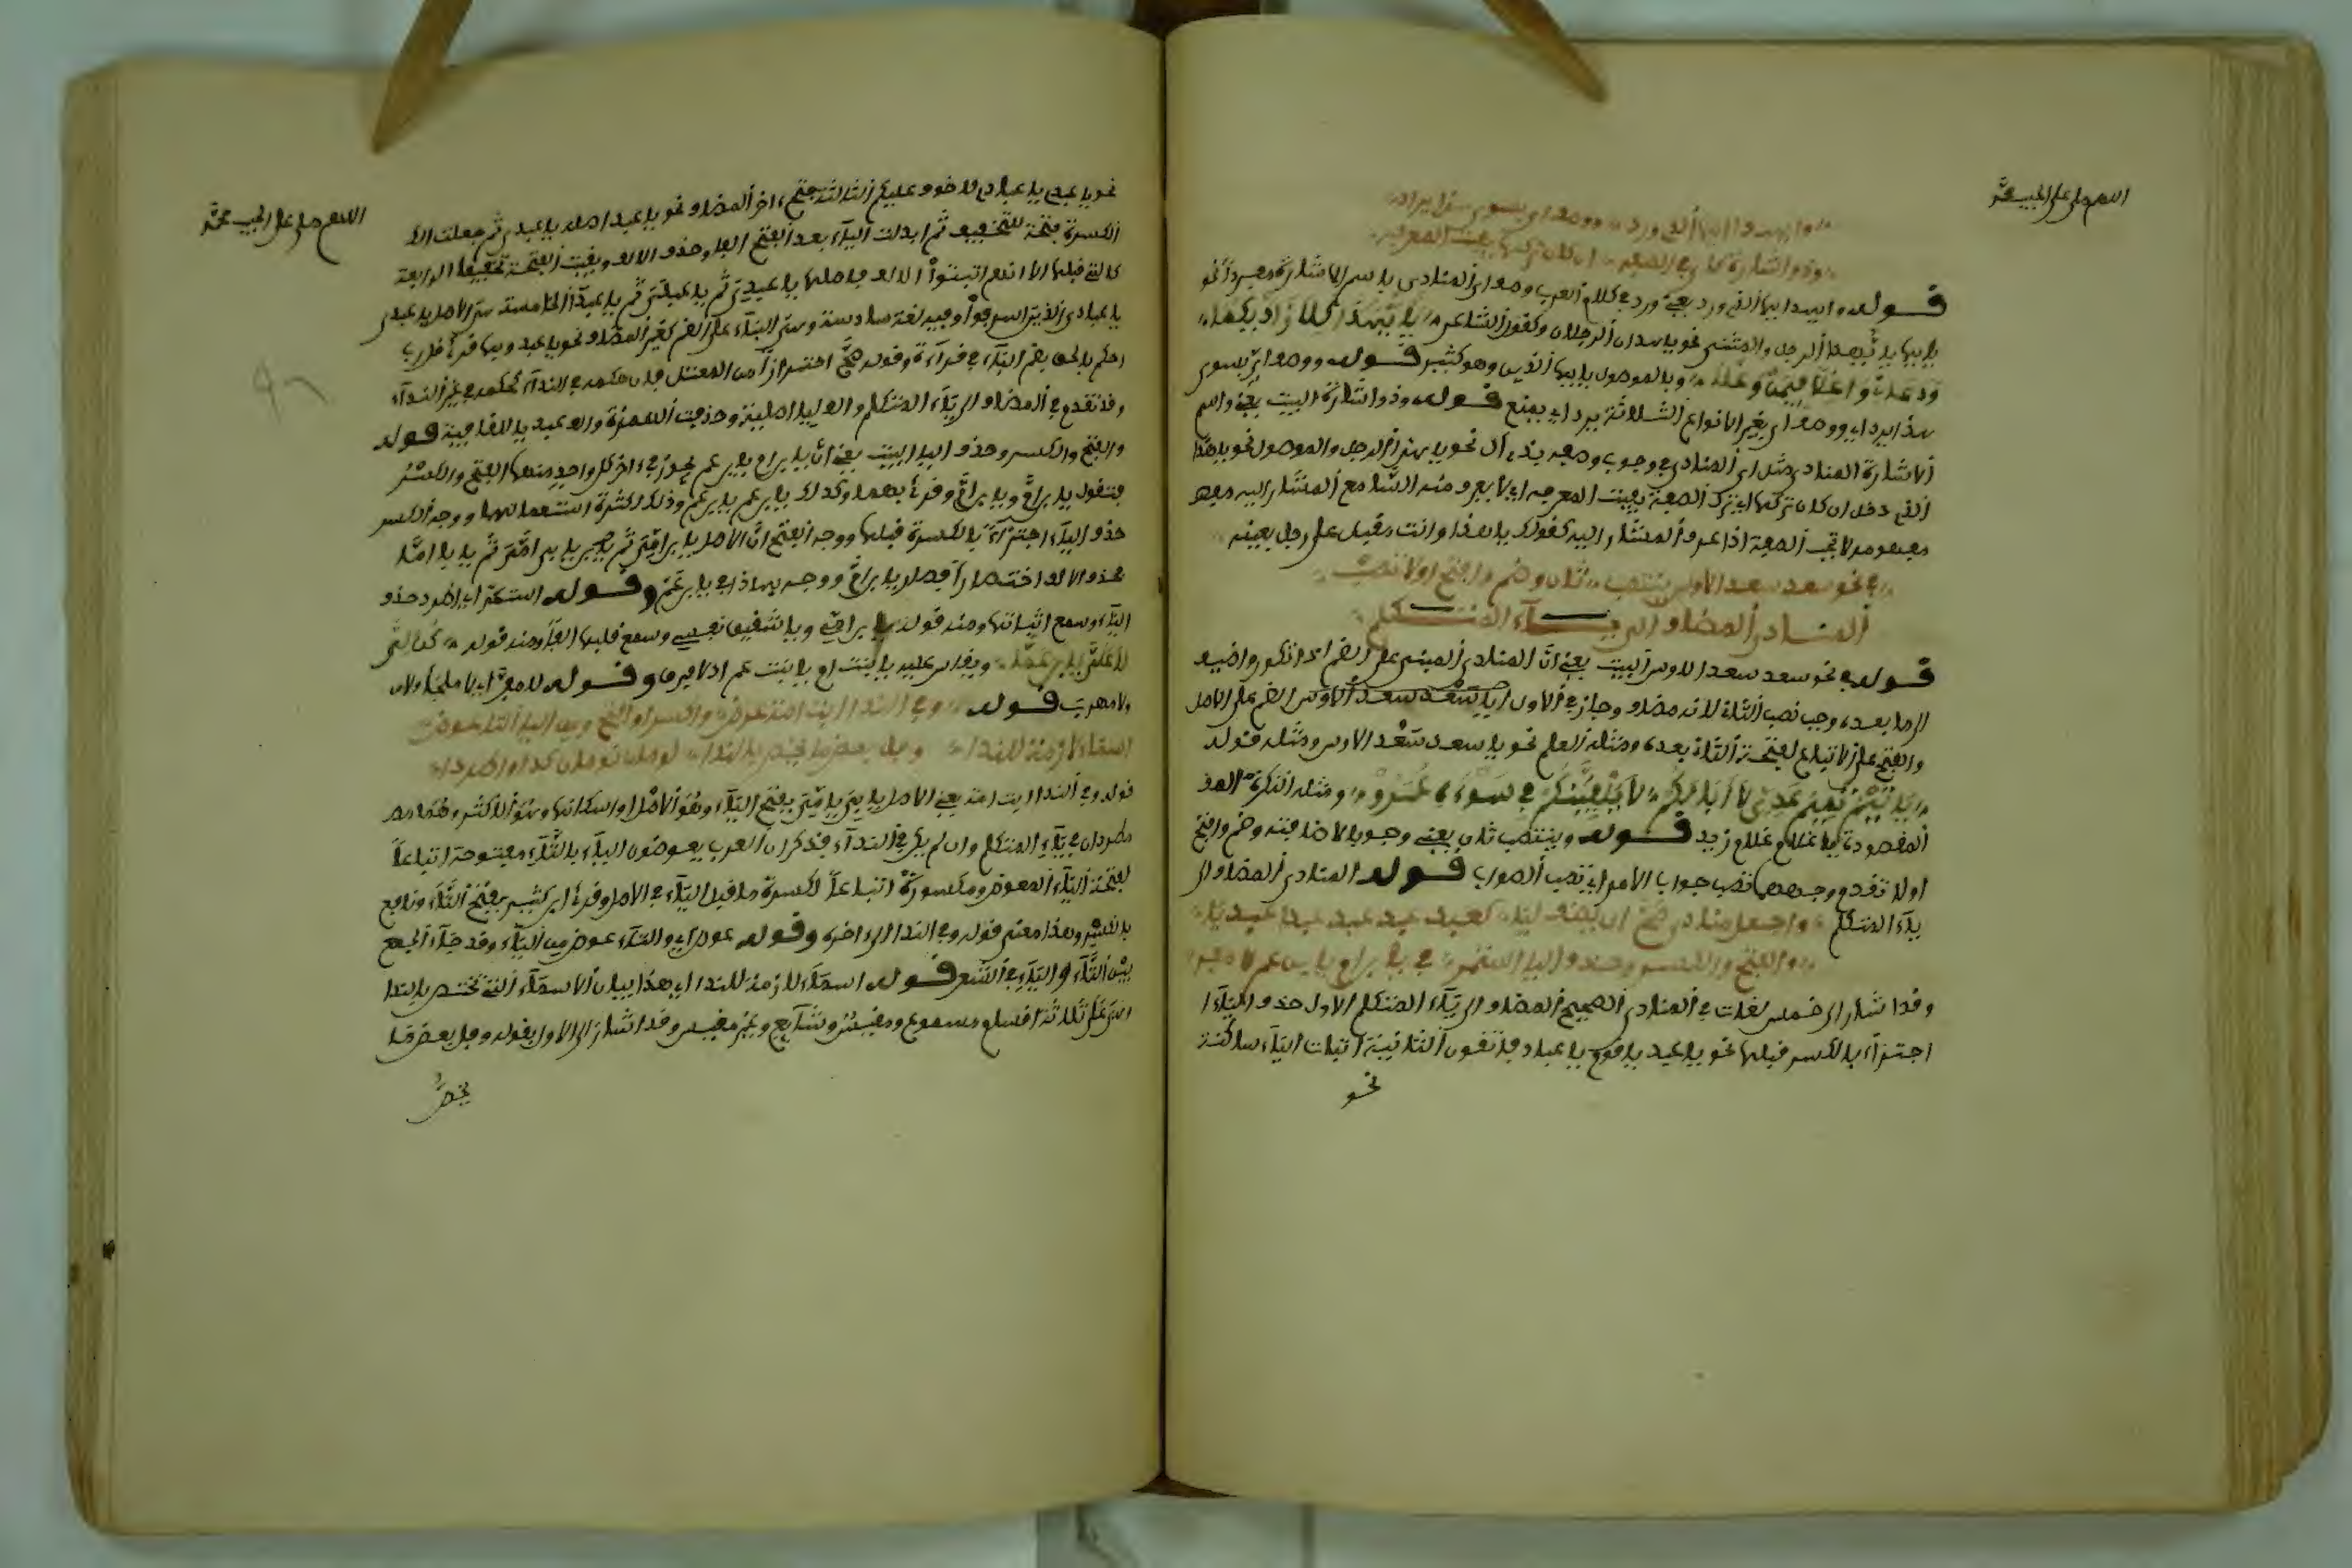 اللهم صل على الحبيب محمد
وأي هذا أيها الذي ورد ووصف أي بسوى هذا يرد
وذو إشارة كأي في الصفه إن كان تركها يفيت المعرفه
قوله وأي هذا أيها الذي ورد يعني ورد في كلام العرب وصف أي المنادى باسم الإشارة مفردا نحو
يا أيها يا أيهذا الرجل والمثنى نحو يا أيهذان الرجلان وكقول الشاعر يا أيهذان كلا زاديكما
ودعاني واغلا فيمن وغل وبالموصول يا أيها الذين وهو كثير قوله ووصف أي بسوى
هذا يرد أي ووصف أي بغير الأنواع الثلاثة يرد أي يمنع قوله وذو إشارة البيت يعني واسم
الإشارة المنادى مثل أي المنادى في وجوب وصفه بذي أل نحو يا هذا الرجل والموصول نحو يا هذا
الذي دخل إن كان تركها أي ترك الصفة يفيت المعرفه أي لا يعرف منه السامع المشار إليه
مفهومه لا تجب الصفة إذا عرف المشار إليه كقولك يا هذا وأنت مقبل على رجل بعينه
في نحو سعد سعد الأوس ينتصب ثان وضم وافتح أولا تصب
المنادى المضاف إلى ياء المتكلم
قوله في نحو سعد سعد الأوس البيت يعني أن المنادى المبني على الضم إذا تكرر وأضيف
إلى ما بعده وجب نصب الثاني لأنه مضاف وجاز في الأول أي يا سعد سعد الأوس الضم على الأصل
والفتح على الاتباع لفتحة الثاني بعده ومثله العلم نحو يا سعد سعد الأوس ومثله قوله
يا تيم تيم عدي لا أبا لكم لا يلقينكم في سوءة عمر ومثله النكرة
المقصودة يا غلام غلام زيد قوله وينتصب ثان يعني وجوبا لإضافته وضم وافتح
أولا تقدم وجههما تصب جواب الأمر أي تصب الصواب قوله المنادى المضاف إلى
ياء المتكلم واجعل منادى صح إن يضف ليا كعبد عبدي عبد عبدا عبديا
والفتح والكسر وحذف اليا استمر في يا ابن أم يا ابن عم لا مفر
وقد أشار إلى خمس لغات في المنادى الصحيح المضاف إلى ياء المتكلم الأول حذف الياء
اجتزاء بالكسر قبلها نحو يا عبد يا قوم يا عباد فاتقون الثانية إثبات الياء ساكنة
نحو
اللهم صل على الحبيب محمد
نحو يا عبدي يا عبادي لا خوف عليكم الثالثة فتح آخر المضاف نحو يا عبد أصله يا عبدي ثم جعلت
الكسرة فتحة للتخفيف ثم أبدلت الياء بعد الفتح ألفا وحذف الألف وبقيت الفتحة تخفيفا الرابعة
كالتي قبلها إلا أنهم أثبتوا الألف فأصلها يا عبدي ثم يا عبدي ثم يا عبدا الخامسة الأصل يا عبدي
يا عبادي الذين أسرفوا وفيه لغة سادسة وهي البناء على الضم كغير المضاف نحو يا عبد ومنها قرئ قل رب
احكم بالحق بضم الباء في قراءة وقوله صح احترازا من المعتل فإن حكمه في النداء كحكمه في غير النداء
وقد تقدم في المضاف إلى ياء المتكلم قوله
والفتح والكسر وحذف اليا البيت يعني أن يا ابن أم يا ابن عم يجوز في آخر كل واحد منهما الفتح والكسر
فتقول يا ابن أم ويا ابن أم وقرئ بهما وكذلك يا ابن عم يا ابن عم وذلك لكثرة استعمالهما ووجه الكسر
حذف الياء اجتزاء بالكسرة قبلها ووجه الفتح أن الأصل يا ابن أمي ثم يا ابن أمي ثم يا ابن أما
بحذف الألف اختصارا فصار يا ابن أم ووجه بهذا في يا ابن عم وقوله استمر أي اطرد حذف
الياء وسمع إثباتها ومنه قوله يا ابن أمي ويا شقيق نفسي وسمع قلبها ألفا ومنه قوله كن لي
لا علي يا ابن عما ويقاس عليه يا بنت أم يا بنت عم إذ لا فرق وقوله لا مفر أي لا ملجأ ولا
ولا مهرب قوله وفي الندا أبت أمت عرض واكسر أو افتح ومن اليا التا عوض
أسماء لازمت الندا وفل بعض ما يخص بالندا لؤمان نومان كذا واطردا
قوله وفي الندا أبت أمت يعني الأصل يا أبي يا أمي بفتح الياء وهو الأصل أو إسكانها وهو الأكثر وهما
مطردان في ياء المتكلم وإن لم يكن في النداء فذكر أن العرب يعوضون الياء بالتاء مفتوحة اتباعا
لفتحة الياء المعوض ومكسورة اتباعا لكسرة ما قبل الياء في الأصل وقرأ ابن كثير بفتح التاء ونافع
بالكسر وهذا معنى قوله وفي الندا إلى آخره وقوله عوض أي والتاء عوض من الياء وقد جاء الجمع
بين التاء والياء في الشعر قوله أسماء لازمة للندا أي هذا بيان الأسماء التي تختص بالندا
وهي على ثلاثة أقسام مسموع ومقيس وشائع وغير مقيس وقد أشار إلى الأول بقوله وفل بعض ما
يخص